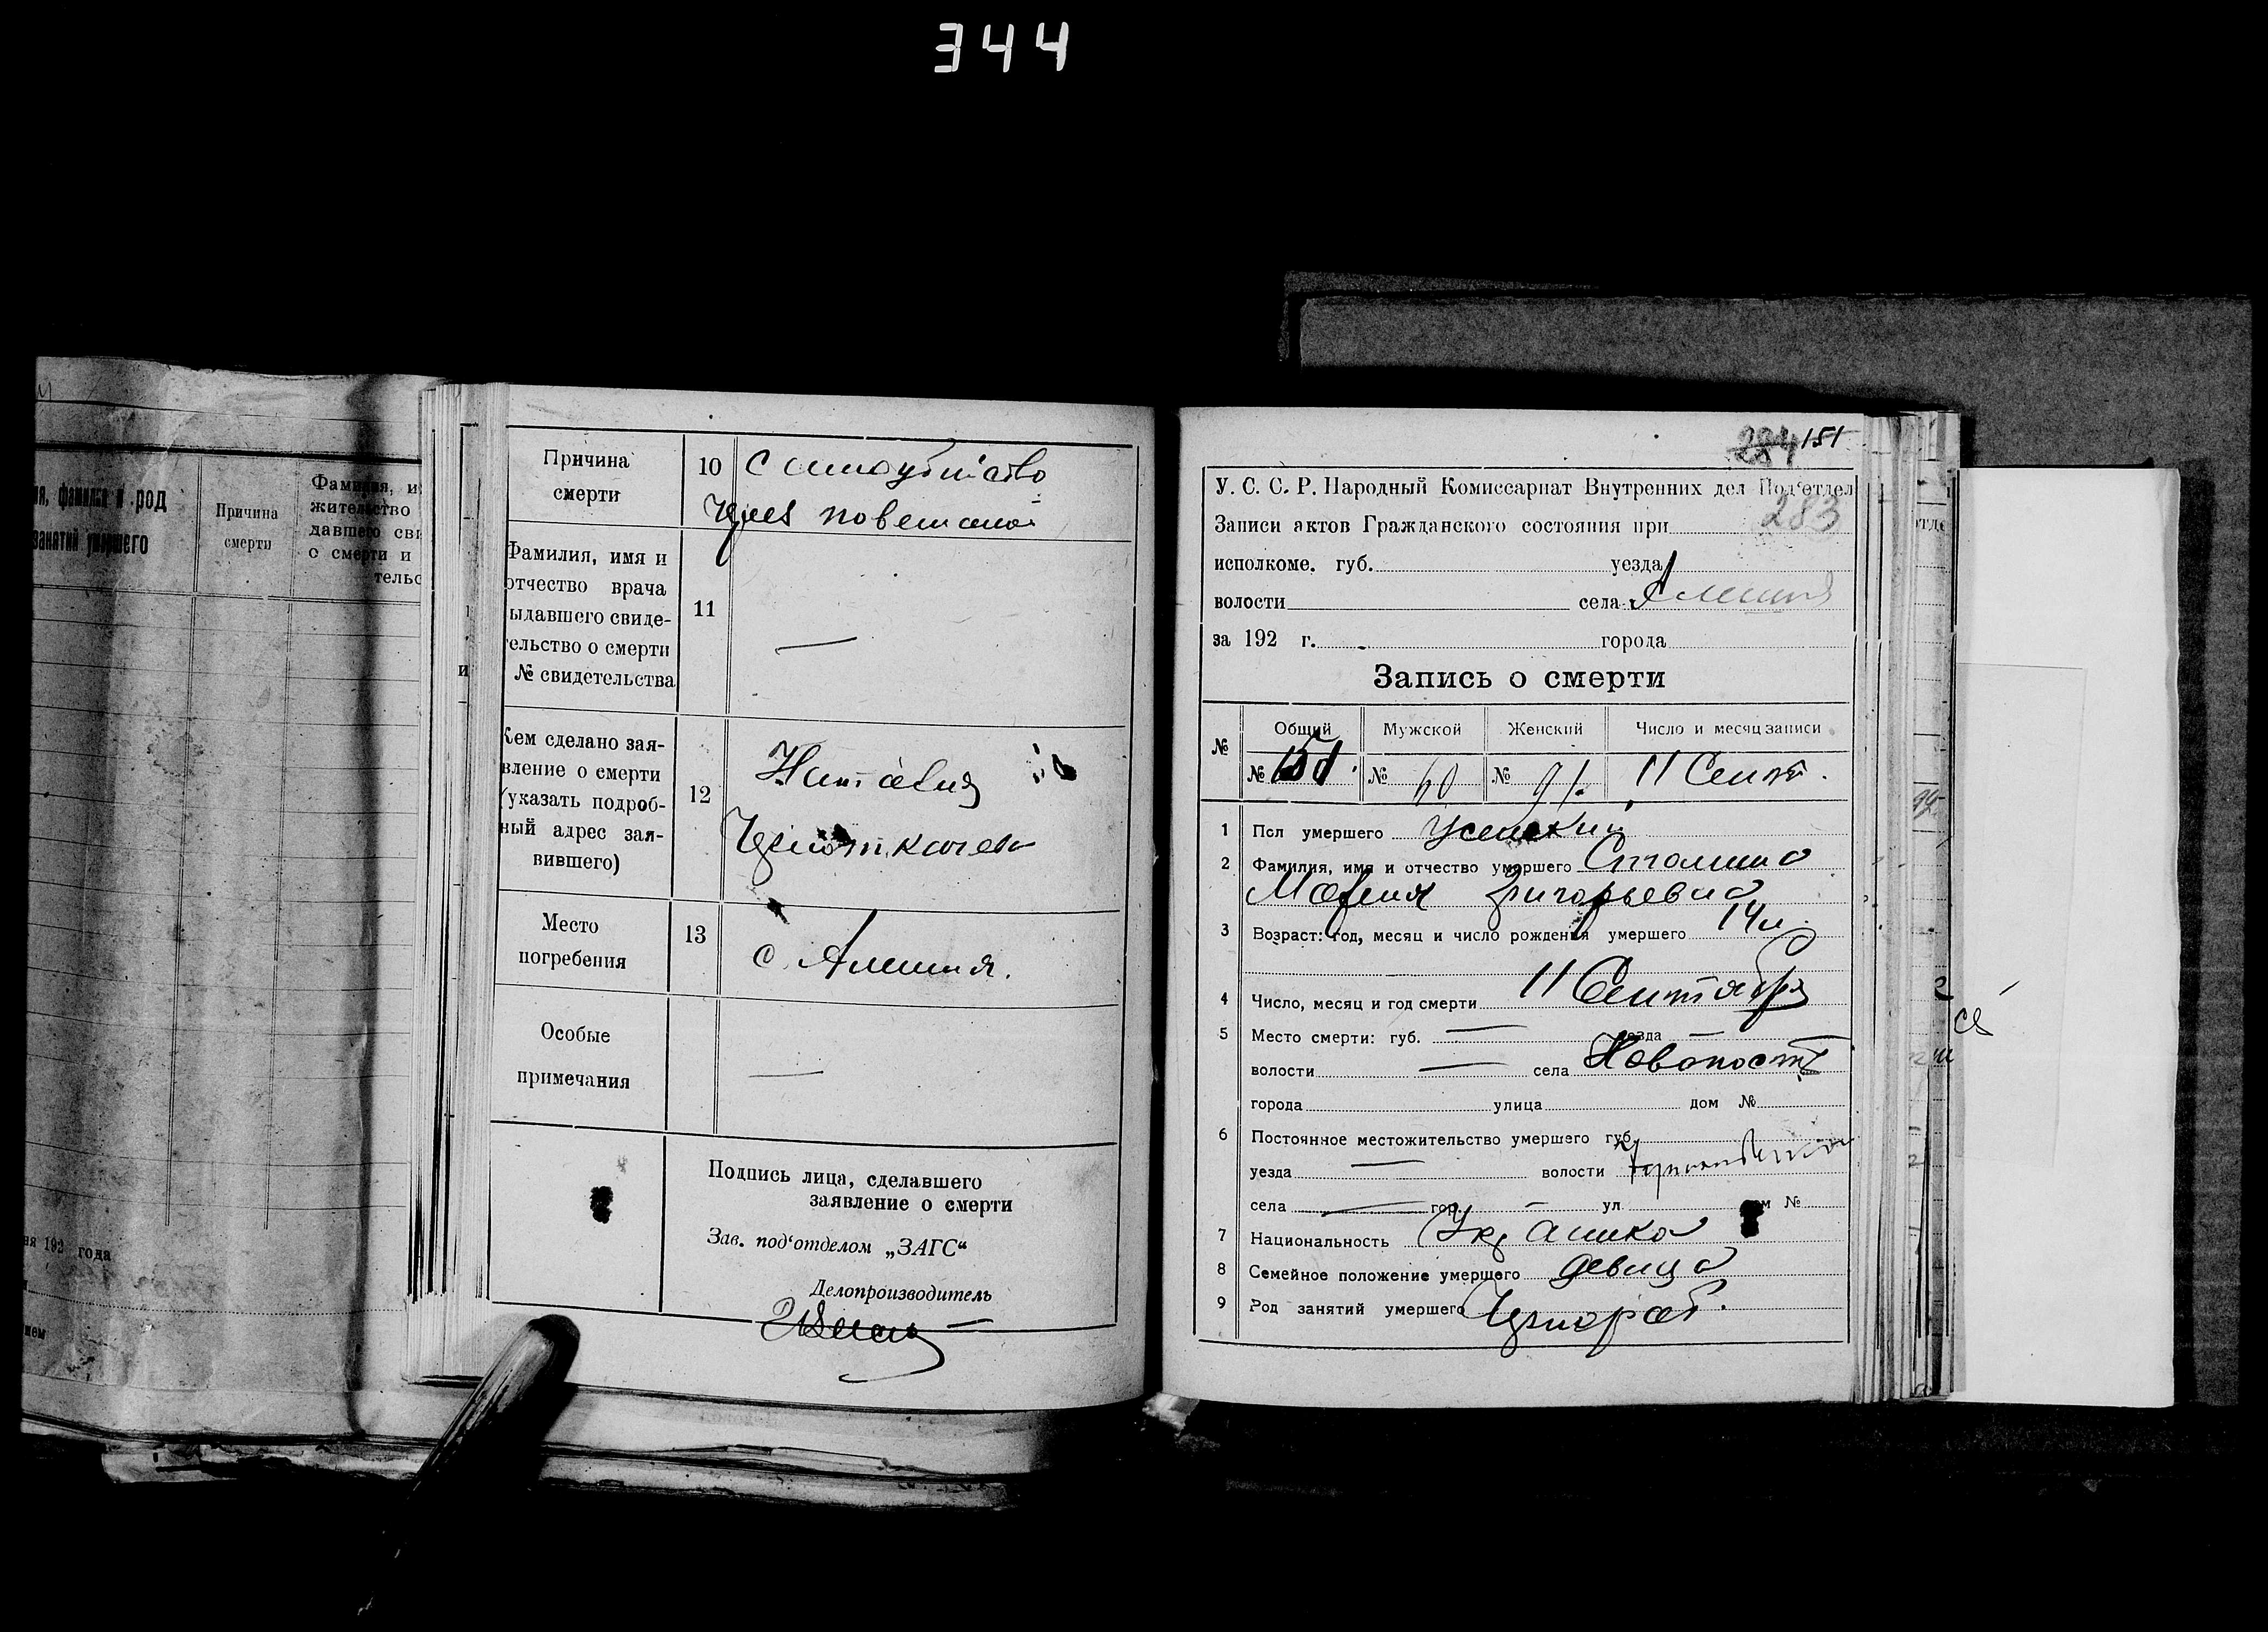 344
я, фамилия и род
занятий умершего
Причина
смерти
Фамилия, и
жительство
давшего сви
о смерти и
тельс
ня 192 года
Причина
смерти
10
Самоубийство
через повешение
Фамилия, имя и
отчество врача
ыдавшего свиде-
ельство о смерти
№ свидетельства
11
—
Кем сделано зая-
вление о смерти
(указать подроб-
ный адрес зая-
вившего)
12
Место
погребения
13
с. Алешня.
Особые
примечания
—
Подпись лица, сделавшего
заявление о смерти
Зав. под'отделом „ЗАГС“
Делопроизводитель
284 151
У. С. С. Р. Народный Комиссариат Внутренних дел Под'отдел
283
Записи актов Гражданского состояния при
исполкоме. губ. уезда
волости села Алешня
за 192 г. города
Запись о смерти
№ Общий Мужской Женский Число и месяц записи
№ 151. № 60 № 91. 11 Сент.
1 Пол умершего Женский
2 Фамилия, имя и отчество умершего
Мария Григорьевна
3 Возраст: год, месяц и число рождения умершего 14 л.
4 Число, месяц и год смерти 11 Сентября
5 Место смерти: губ. — уезда —
волости — села
города улица дом №
6 Постоянное местожительство умершего губ.
уезда — волости
села — гор. — ул. дом №
7 Национальность Укр
8 Семейное положение умершего девица
9 Род занятий умершего